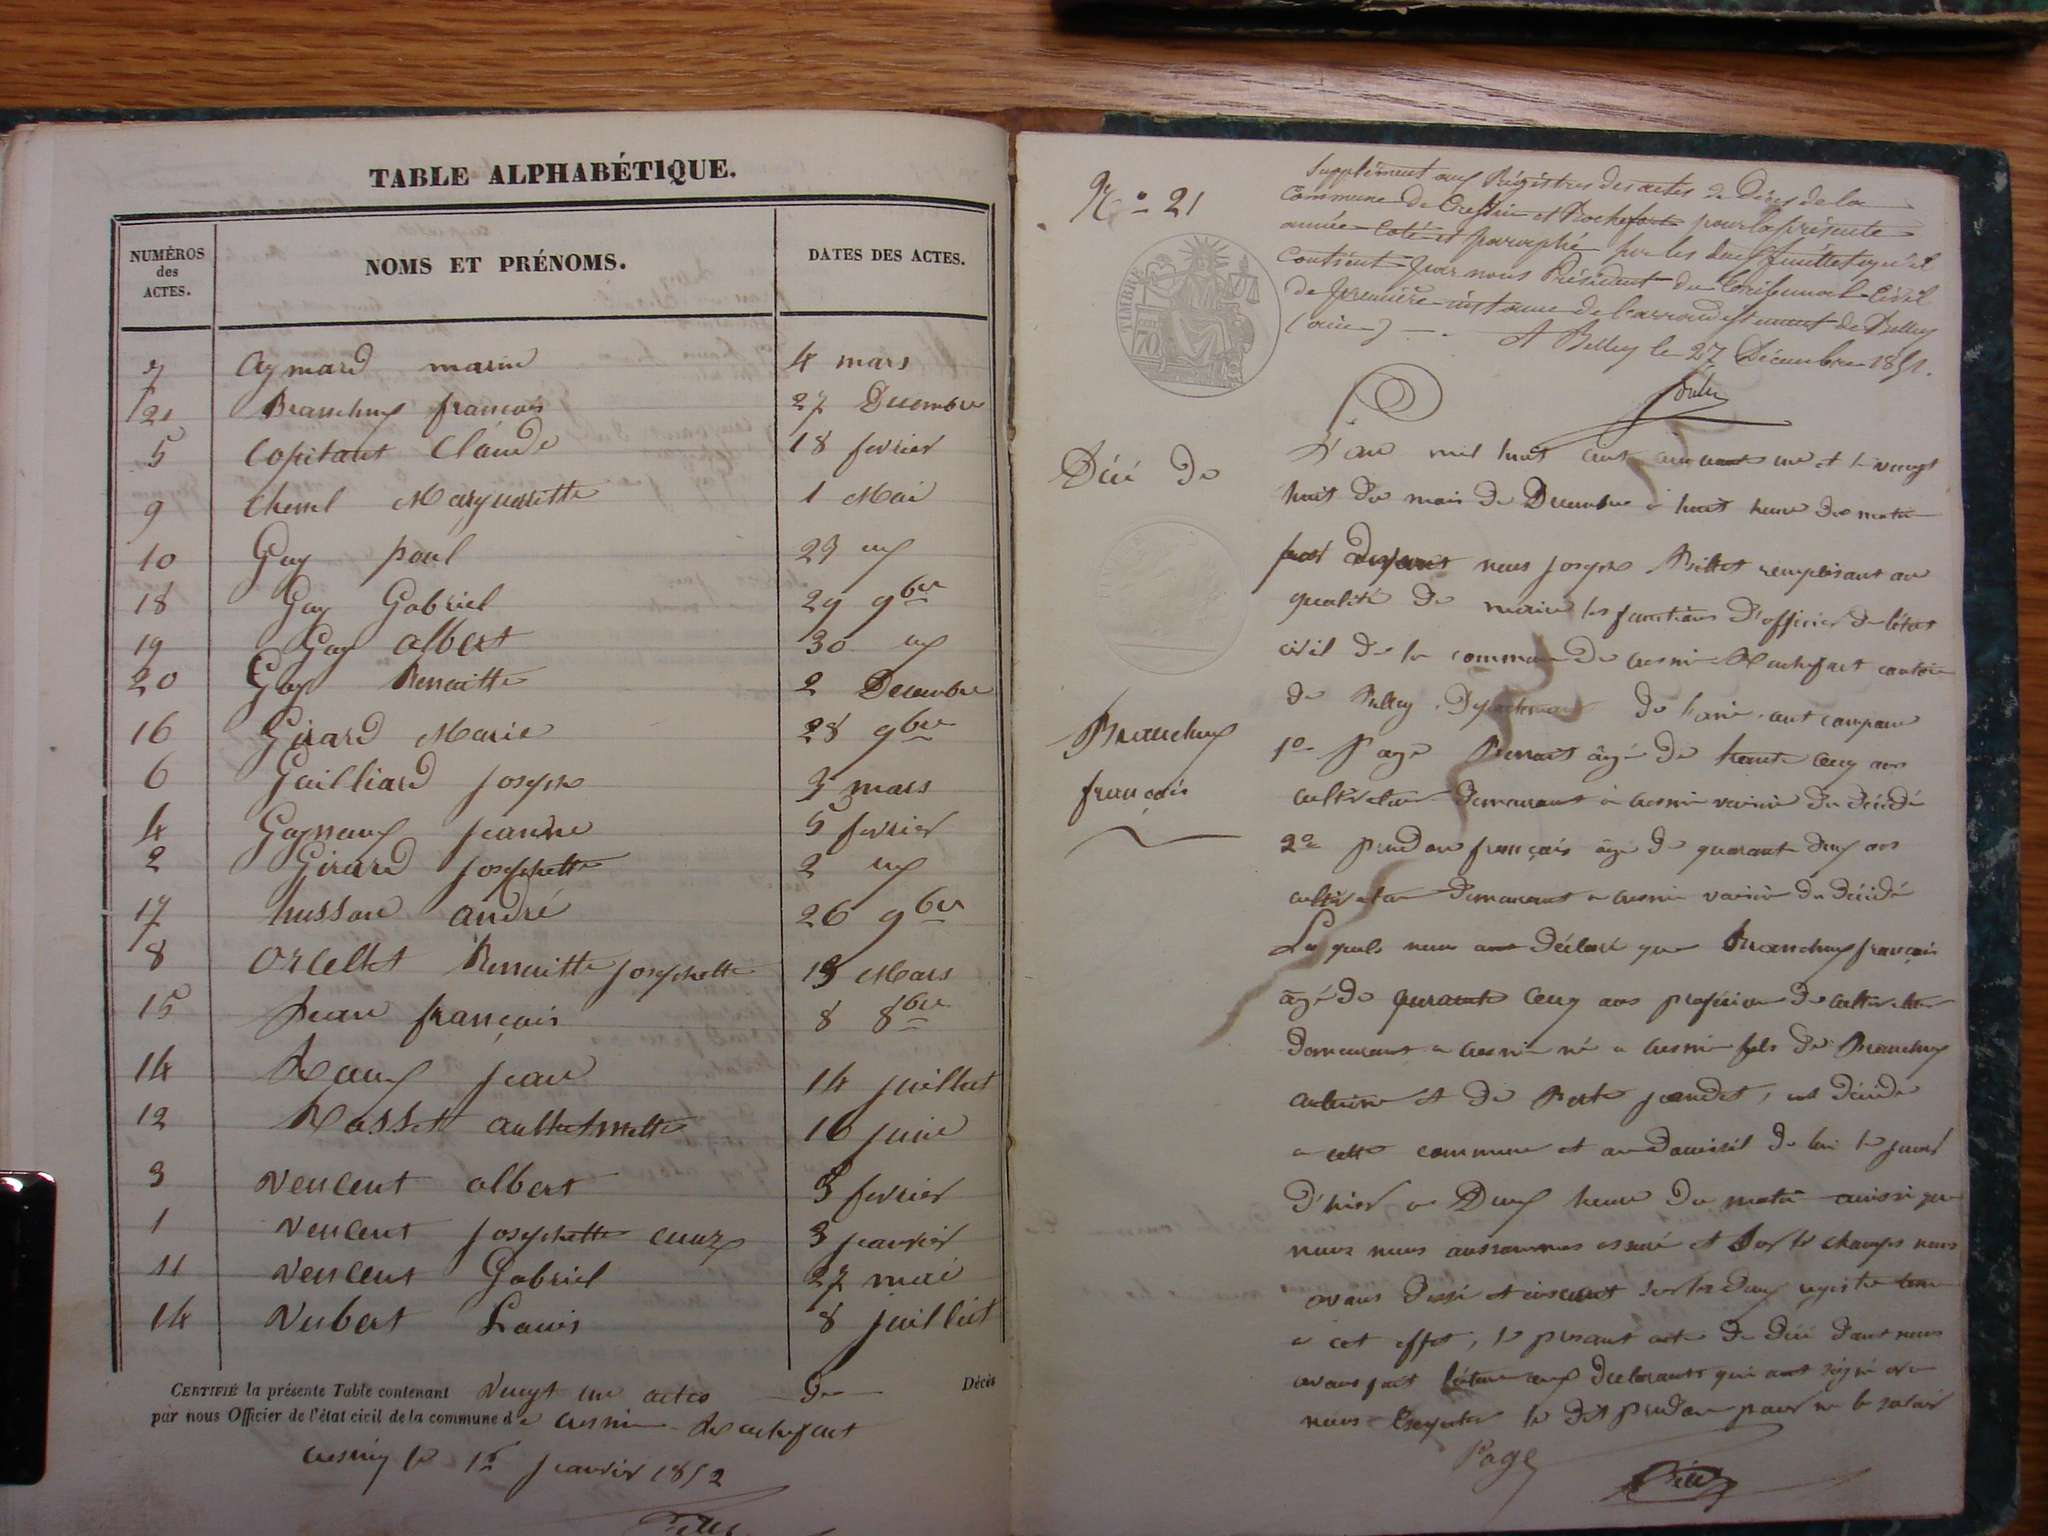 TABLE ALPHABÉTIQUE.
NUMÉROS des ACTES. NOMS ET PRÉNOMS. DATES DES ACTES.
7 Aymard marie 4 mars
21 Branchuy françois 27 Decembre
5 Copitant Claude 18 fevrier
9 Chenel Margueritte 1 Mai
10 Guy paul 23
18 Guy Gabriel 29 9bre
19 Guy albert 30
20 Guy Benoitte 2 Decembre
16 Girard Marie 28 9bre
6 Guilliard Joseph 3 mars
4 Gagneux jeanne 5 fevrier
2 Girard josephette 2
17 husson andré 26 9bre
8 Orcellet Bennoitte josephette 13 Mars
15 Jean françois 8 8bre
14 Roux jean 14 juillet
12 Rosset 16 juin
3 Vencent albert 3 fevrier
1 Vencent josephette 3 janvier
11 Vencent Gabriel 27 mai
14 Vubert Louis 8 juillet
CERTIFIÉ la présente Table contenant vengt un actes de Décès
par nous Officier de l'état civil de la commune de cresnin Rochefort
cresnin le 1er janvier 1852
Nº 21
Supplément aux Régistres des actes de Décès de la
commune de Cressin et Rochefort pour la présente
année coté et paraphé sur les deux feuillets qu'il
contient par nous Président du Tribunal Civil
de première instance de l'arrondissement de Belley
(ain) A Belley le 27 Décembre 1851.
TIMBRE
70
Déci de
Branchuy
françois
L'an mil huit cent cinquante un et le vengt
huit du mois de Decembre à huit heure du matin
par devant nous joseph Billet remplisant en
qualité de maire les fonctions d'officier de l'état
civil de la commune de cresnin Rochefort canton
de Belley Département de l'ain, ont comparu
1º Page Benoit âgé de trente cenq ans
cultivateur demeurant à cresnin voisin du décédé
2º prudon françois âgé de quarante deux ans
cultivateur demeurant a cresnin voisin du décédé
Les quels nous ont déclaré que Branchuy françois
âgé de quarante cenq ans profession de cultivateur
demeurant a cresnin né a cresnin fils de Branchuy
antoine et de jeandet, est décédé
a cette commune et au domicil de lui le jour
d'hier a Deux heure du matin ainsi que
nous nous en sommes assuré et sur le champs nous
avons dressé et inscrit sur les deux registre tenu
a cet effet, le present acte de déci dont nous
avons fait lecture aux declarants qui ont signé avec
nous Excepter le dit prudon pour ne le savoir
Page Billet